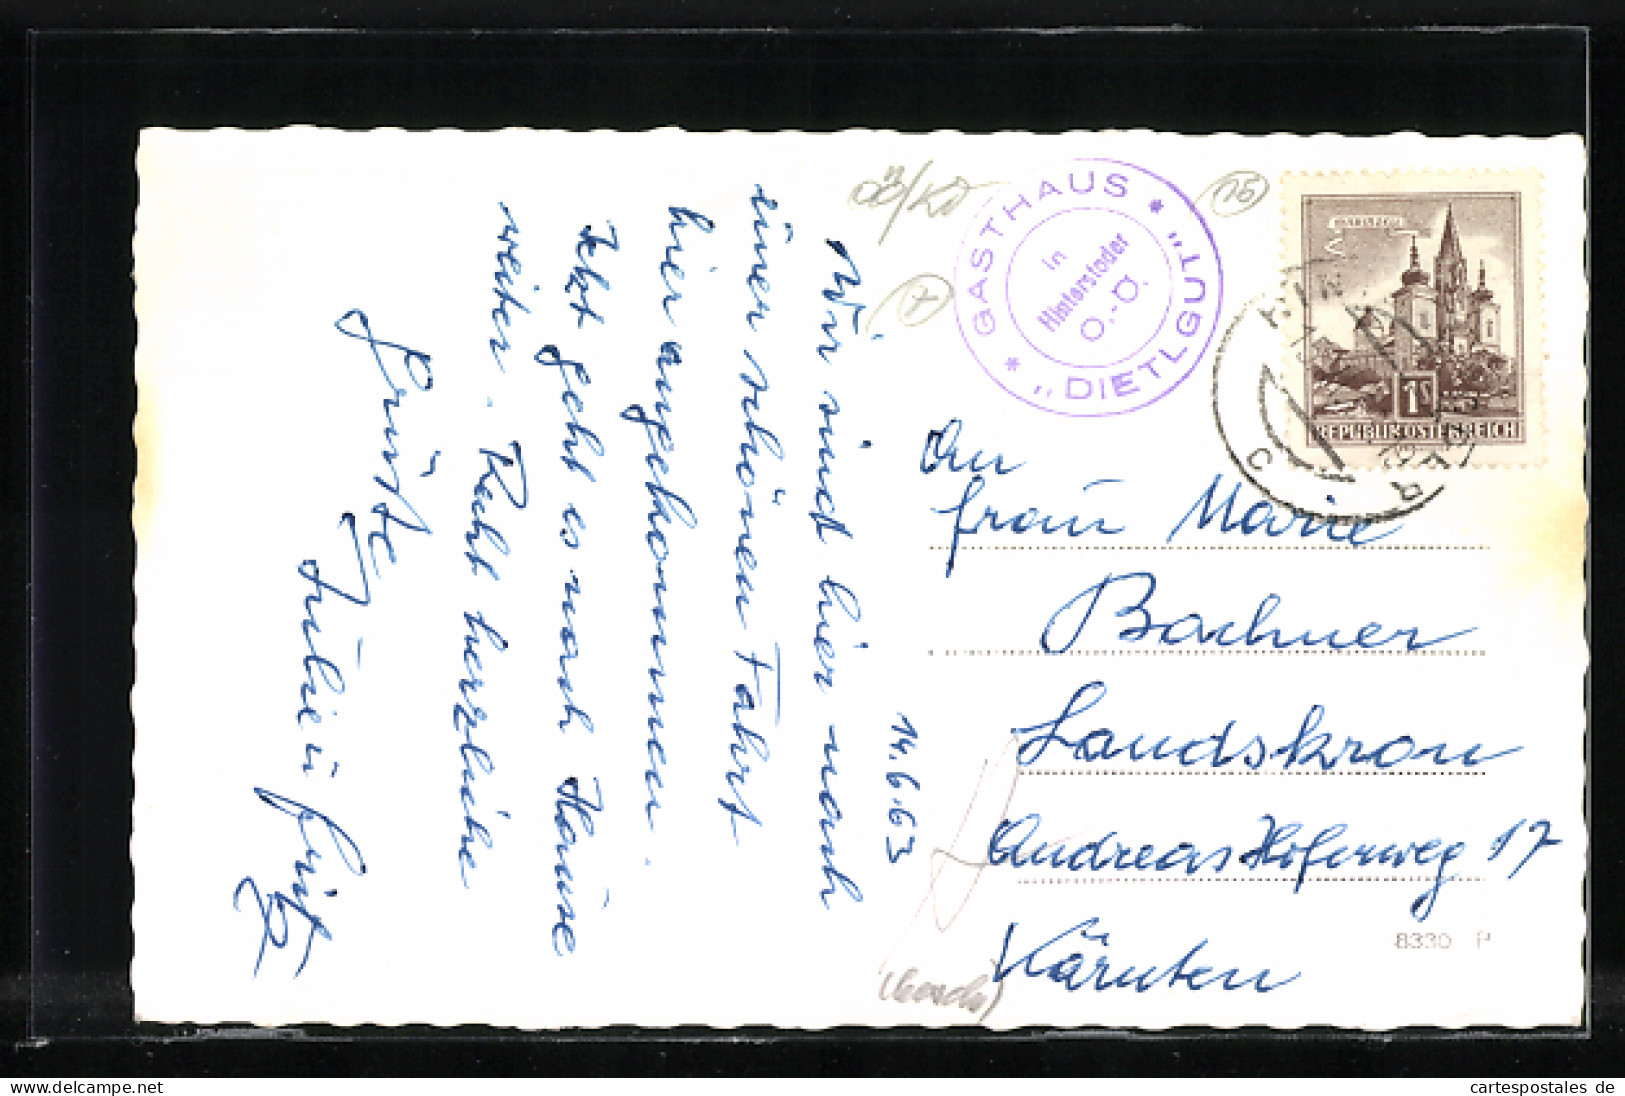 Wir sind hier nach
einer schönen Fahrt
hier angekommen.
Jetzt geht es nach Hause
weiter. Recht herzliche
Grüße
Julie u Fritz
14.6.63
OÖ/KD
15
GASTHAUS
* "DIETLGUT" *
in
Hinterstoder
O.-Ö.
MARIAZELL
1S
REPUBLIK ÖSTERREICH
An
Frau Marie
Bachner
Landskron
Andreas Hoferweg 17
Kärnten
8330 P
delcampe.net
cartespostales de